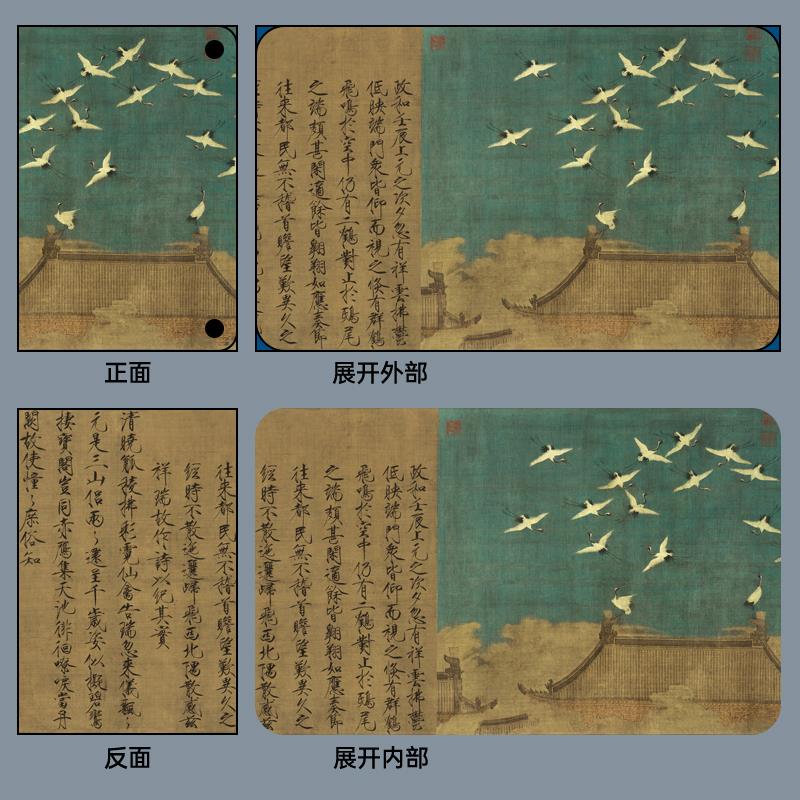 政和壬辰上元之次夕忽有祥雲拂鬱
低映端門衆皆仰而視之倏有群鶴
飛鳴於空中仍有二鶴對止於鴟尾
之端頗甚閑適餘皆翱翔如應奏節
往来都民無不稽首瞻望歎異久之
正面
展开外部
往来都民無不稽首瞻望歎異久之
經時不散迤邐歸飛西北隅散感茲
祥瑞故作詩以紀其實
清曉觚稜拂彩霓仙禽告瑞忽来儀飄〻
元是三山侶兩〻還呈千歲姿似擬碧鸞
棲寶閣豈同赤鴈集天池徘徊嘹唳當丹
闕故使憧〻庶俗知
政和壬辰上元之次夕忽有祥雲拂鬱
低映端門衆皆仰而視之倏有群鶴
飛鳴於空中仍有二鶴對止於鴟尾
之端頗甚閑適餘皆翱翔如應奏節
往来都民無不稽首瞻望歎異久之
經時不散迤邐歸飛西北隅散感茲
反面
展开内部